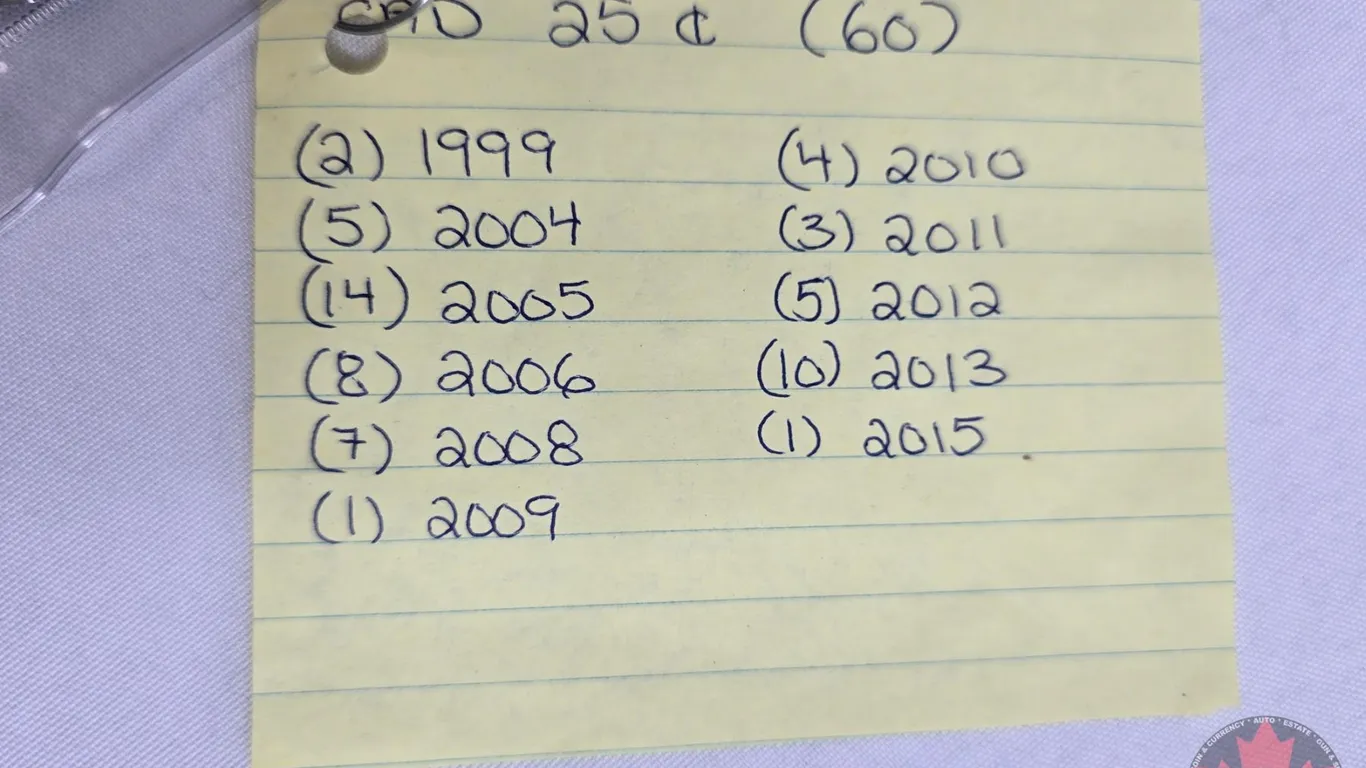 CAD 25¢ (60)
(2) 1999
(5) 2004
(14) 2005
(8) 2006
(7) 2008
(1) 2009
(4) 2010
(3) 2011
(5) 2012
(10) 2013
(1) 2015
COIN & CURRENCY * AUTO * ESTATE * GUN &